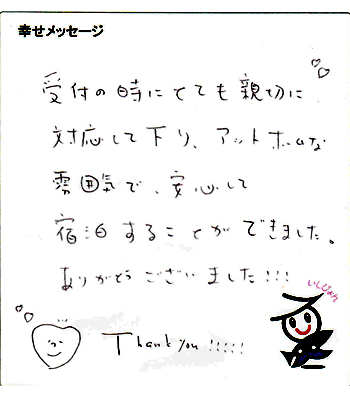 幸せメッセージ
受付の時にとても親切に
対応して下り、アットホームな
雰囲気で、安心して
宿泊することができました。
ありがとうございました!!!
Thank you !!!!!